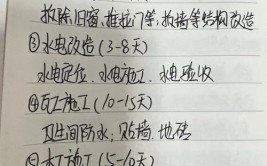 拆除旧窗、推拉门等,拆墙等结构改造
③水电改造(3-8天)
水电定位、水电施工、水电验收
④瓦工施工(10-15天)
卫生间防水;贴墙、地砖
⑤木工施工(5-10天)